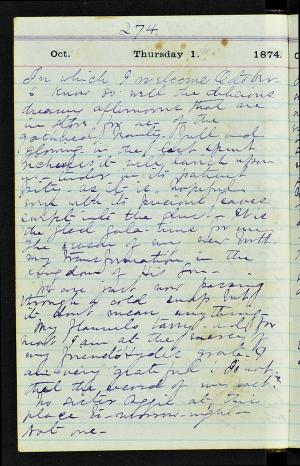 274
Oct. Thursday 1. 1874.
In which I welcome October
I know so well the delicious
dreamy afternoons that are
in store for us of the
gathered beauty. Full and
glowing in the last spent
riches it will laugh upon
us tender in its patient
as it is hopeful
and with its precious leaves
swept into the dust - It is
the glad gala-time for me
The season of my new birth
my transformation in the
kingdom of His Son -
We are just now passing
through a cold snap but
it don't mean anything
My flannels tarry and for
heat I am at the mercy of
my friend's grate. I
am very grateful. Is not
that the record of my past?
No sister Aggie at this
place to-morrow-night -
Not one -